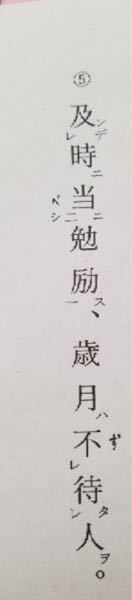 ⑤ 及ンデレ時ニ当ニベシ二勉励ス一、歳月ハ不ずレ待タン人ヲ。